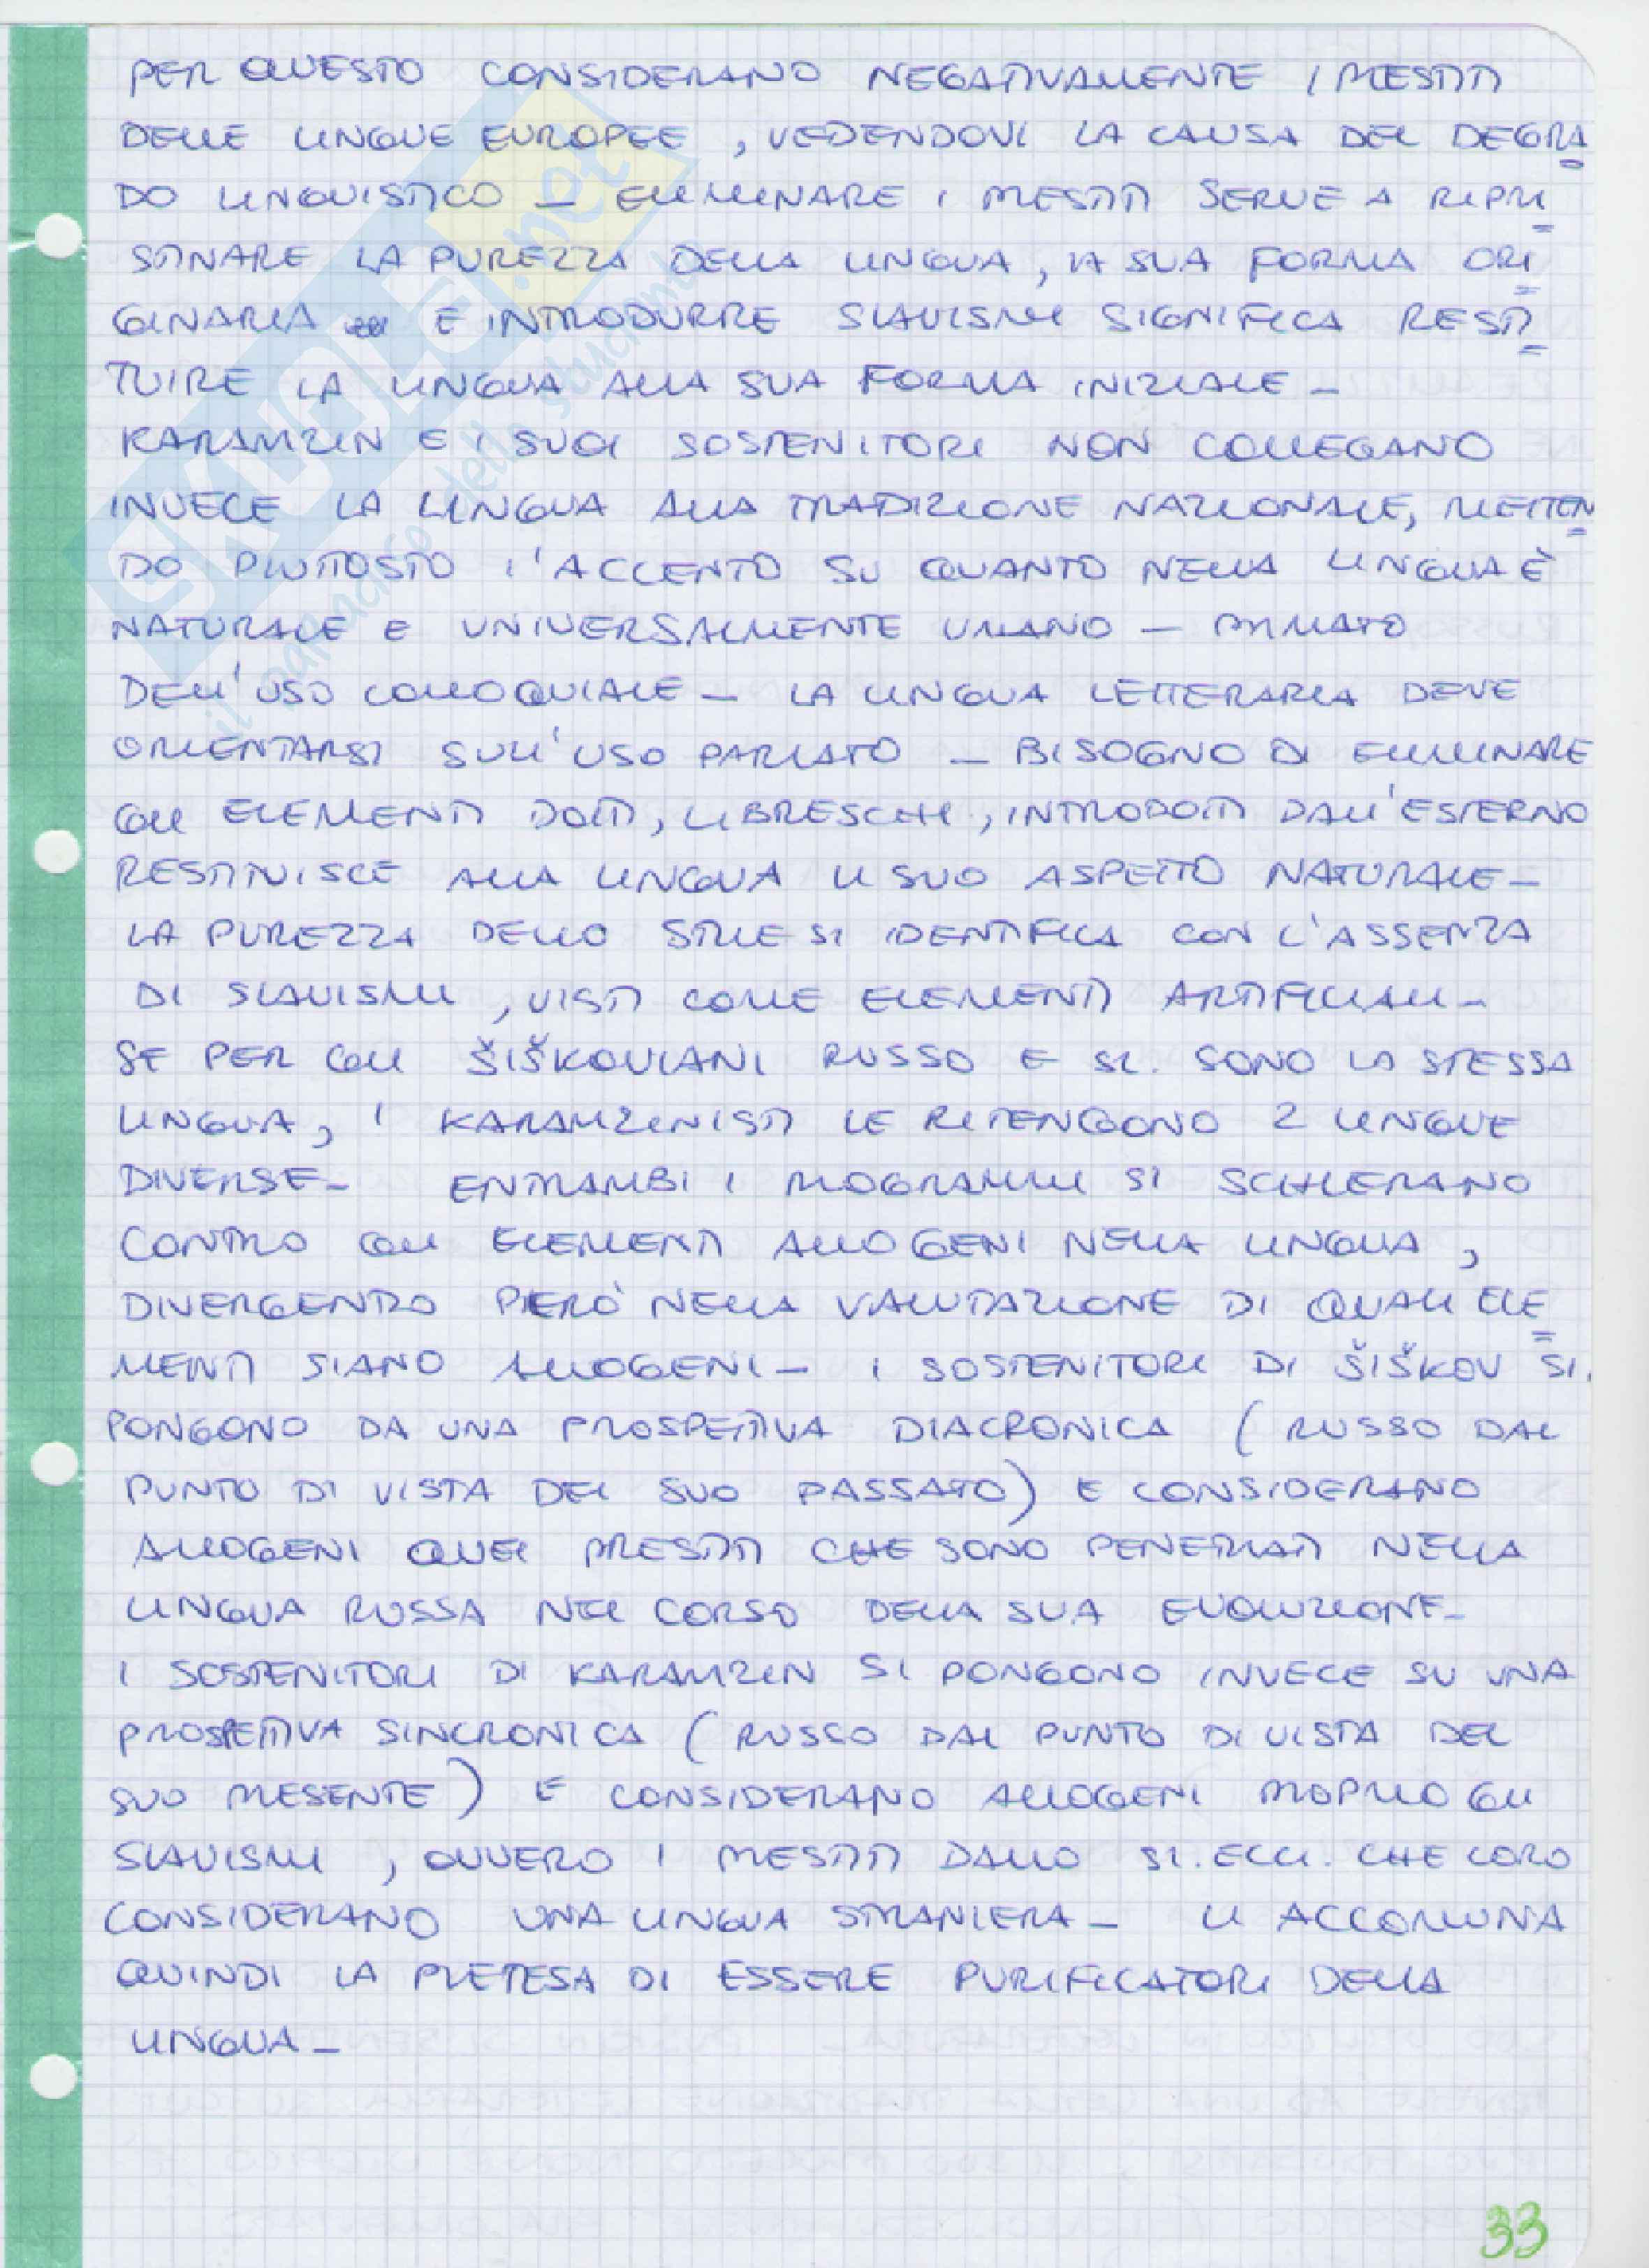 PER QUESTO CONSIDERANO NEGATIVAMENTE I PRESTITI
DELLE LINGUE EUROPEE, VEDENDOVI LA CAUSA DEL DEGRA
DO LINGUISTICO _ ELIMINARE I PRESTITI SERVE A RIPRI
STINARE LA PUREZZA DELLA LINGUA, LA SUA FORMA ORI
GINARIA E INTRODURRE SLAVISMI SIGNIFICA RESTI
TUIRE LA LINGUA ALLA SUA FORMA INIZIALE _
KARAMZIN E I SUOI SOSTENITORI NON COLLEGANO
INVECE LA LINGUA ALLA TRADIZIONE NAZIONALE, METTEN
DO PIUTTOSTO L'ACCENTO SU QUANTO NELLA LINGUA È
NATURALE E UNIVERSALMENTE UMANO _ PRIMATO
DELL'USO COLLOQUIALE _ LA LINGUA LETTERARIA DEVE
ORIENTARSI SULL'USO PARLATO _ BISOGNO DI ELIMINARE
GLI ELEMENTI DOTTI, LIBRESCHI, INTRODOTTI DALL'ESTERNO
RESTITUISCE ALLA LINGUA IL SUO ASPETTO NATURALE _
LA PUREZZA DELLO STILE SI IDENTIFICA CON L'ASSENZA
DI SLAVISMI, VISTI COME ELEMENTI ARTIFICIALI _
SE PER GLI ŠIŠKOVIANI RUSSO E SL. SONO LA STESSA
LINGUA, I KARAMZINISTI LE RITENGONO 2 LINGUE
DIVERSE _ ENTRAMBI I PROGRAMMI SI SCHIERANO
CONTRO GLI ELEMENTI ALLOGENI NELLA LINGUA,
DIVERGENDO PERÒ NELLA VALUTAZIONE DI QUALI ELE
MENTI SIANO ALLOGENI _ I SOSTENITORI DI ŠIŠKOV SI
PONGONO DA UNA PROSPETTIVA DIACRONICA (RUSSO DAL
PUNTO DI VISTA DEL SUO PASSATO) E CONSIDERANO
ALLOGENI QUEI PRESTITI CHE SONO PENETRATI NELLA
LINGUA RUSSA NEL CORSO DELLA SUA EVOLUZIONE _
I SOSTENITORI DI KARAMZIN SI PONGONO INVECE SU UNA
PROSPETTIVA SINCRONICA (RUSSO DAL PUNTO DI VISTA DEL
SUO PRESENTE) E CONSIDERANO ALLOGENI PROPRIO GLI
SLAVISMI, OVVERO I PRESTITI DALLO SL. ECCL. CHE LORO
CONSIDERANO UNA LINGUA STRANIERA _ LI ACCOMUNA
QUINDI LA PRETESA DI ESSERE PURIFICATORI DELLA
LINGUA _
SKUOLA.net
il paradiso dello studente
33